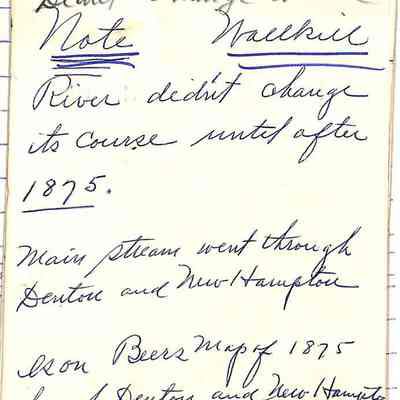 Note Wallkill
River didn't change
its course until after
1875.
Main stream went through
Denton and New Hampton
is on Beers Map of 1875
Denton and New Hampto